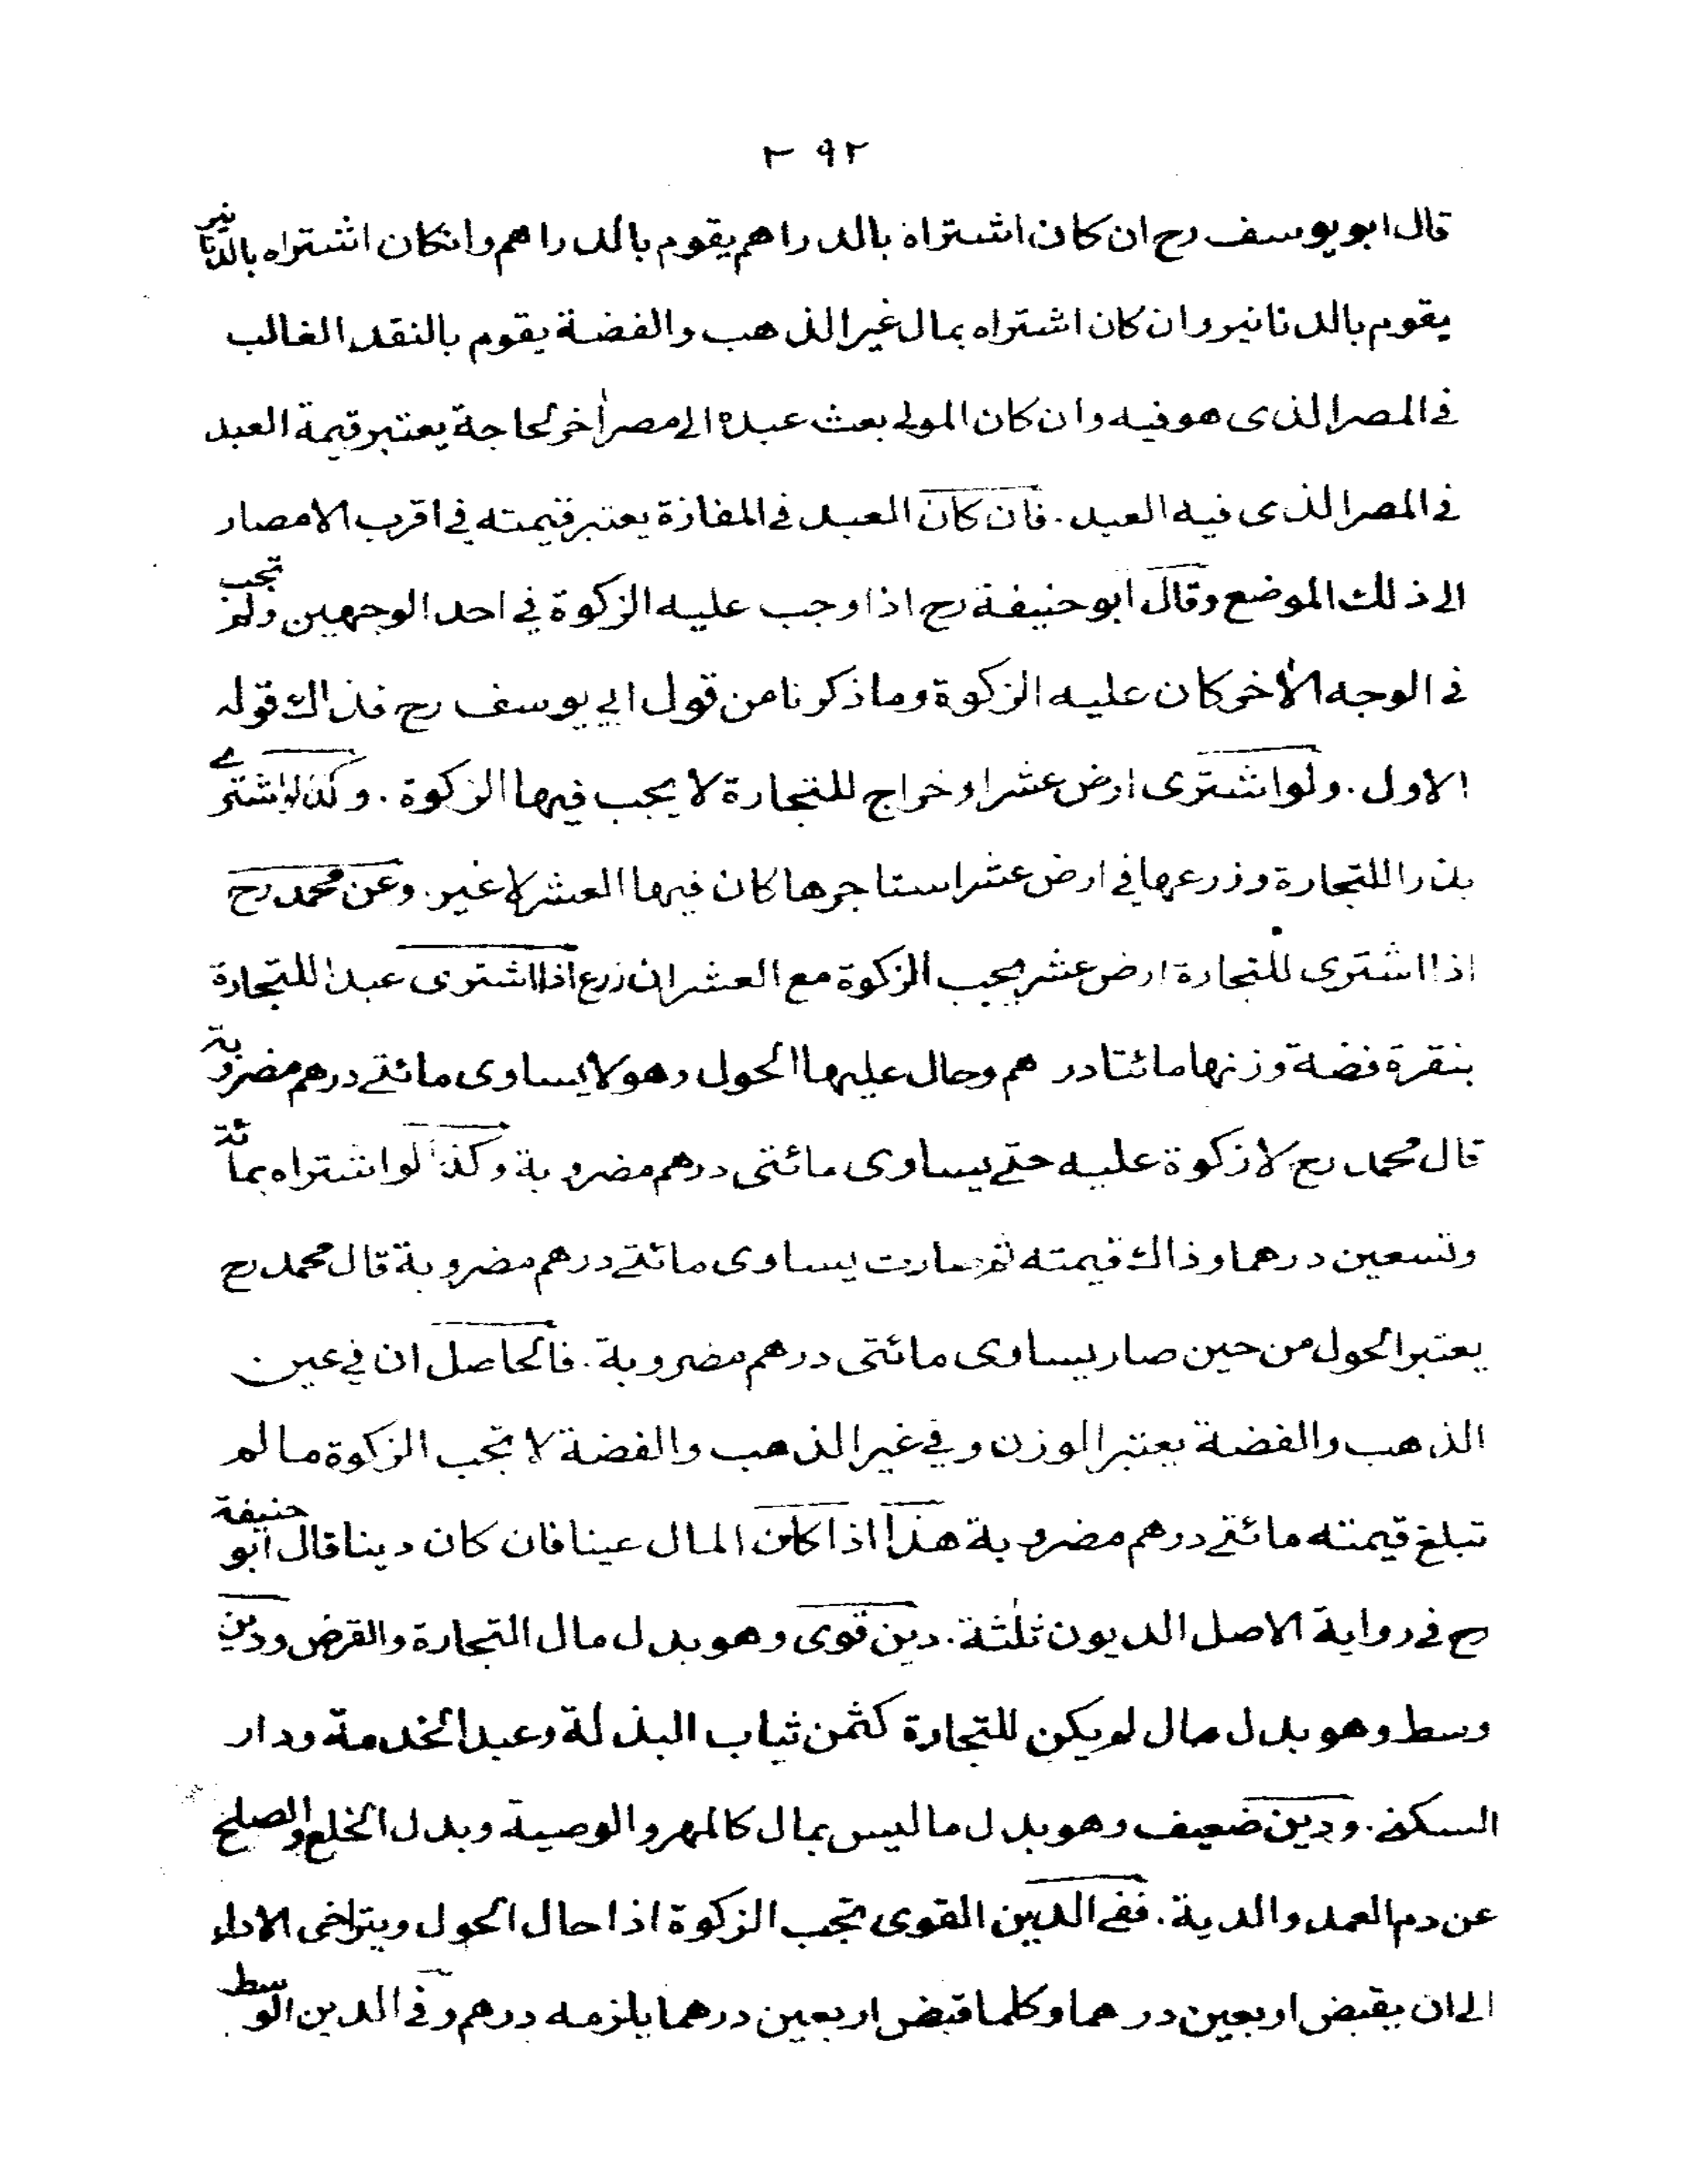 ٢٩٢
قال ابو يوسف رح ان كان اشتراه بالدراهم يقوم بالدراهم وانكان اشتراه بالدنانير
يقوم بالدنانير وان كان اشتراه بمال غير الذهب والفضة يقوم بالنقد الغالب
في المصر الذى هو فيه وان كان المولى بعث عبده الى مصر اٰخر لحاجة يعتبر قيمة العبد
في المصر الذى فيه العبد. فان كان العبد في المفازة يعتبر قيمته في اقرب الامصار
الى ذلك الموضع وقال ابو حنيفة رح اذا وجب عليه الزكوة في احد الوجهين ولم تجب
في الوجه الاٰخر كان عليه الزكوة وما ذكرنا من قول ابي يوسف رح فذاك قوله
الاول. ولو اشترى ارض عشر او خراج للتجارة لا يجب فيها الزكوة. وكذا لو اشترى
بذرا للتجارة وزرعها في ارض عشر استاجرها كان فيها العشر لا غير. وعن محمد رح
اذا اشترى للتجارة ارض عشر يجب الزكوة مع العشر ان زرع اذا اشترى عبدا للتجارة
بنقرة فضة وزنها مائتا درهم وحال عليها الحول وهو لا يساوى مائتے درهم مضروبة
قال محمد رح لا زكوة عليه حتے يساوى مائتى درهم مضروبة وكذا لو اشتراه بمائة
وتسعين درهما وذاك قيمته ثم صارت يساوى مائتے درهم مضروبة قال محمد رح
يعتبر الحول من حين صار يساوى مائتى درهم مضروبة. فالحاصل ان في عين
الذهب والفضة يعتبر الوزن وفي غير الذهب والفضة لا تجب الزكوة ما لم
تبلغ قيمته مائتے درهم مضروبة هذا اذا كان المال عينا فان كان دينا قال ابو حنيفة
رح في رواية الاصل الديون ثلٰثة. دين قوى وهو بدل مال التجارة والقرض ودين
وسط وهو بدل مال لم يكن للتجارة كثمن ثياب البذلة وعبد الخدمة ودار
السكنى. ودين ضعيف وهو بدل ما ليس بمال كالمهر والوصية وبدل الخلع والصلح
عن دم العمد والدية. ففي الدين القوى تجب الزكوة اذا حال الحول ويتراخى الاداء
الى ان يقبض اربعين درهما وكلما قبض اربعين درهما يلزمه درهم وفي الدين الوسط